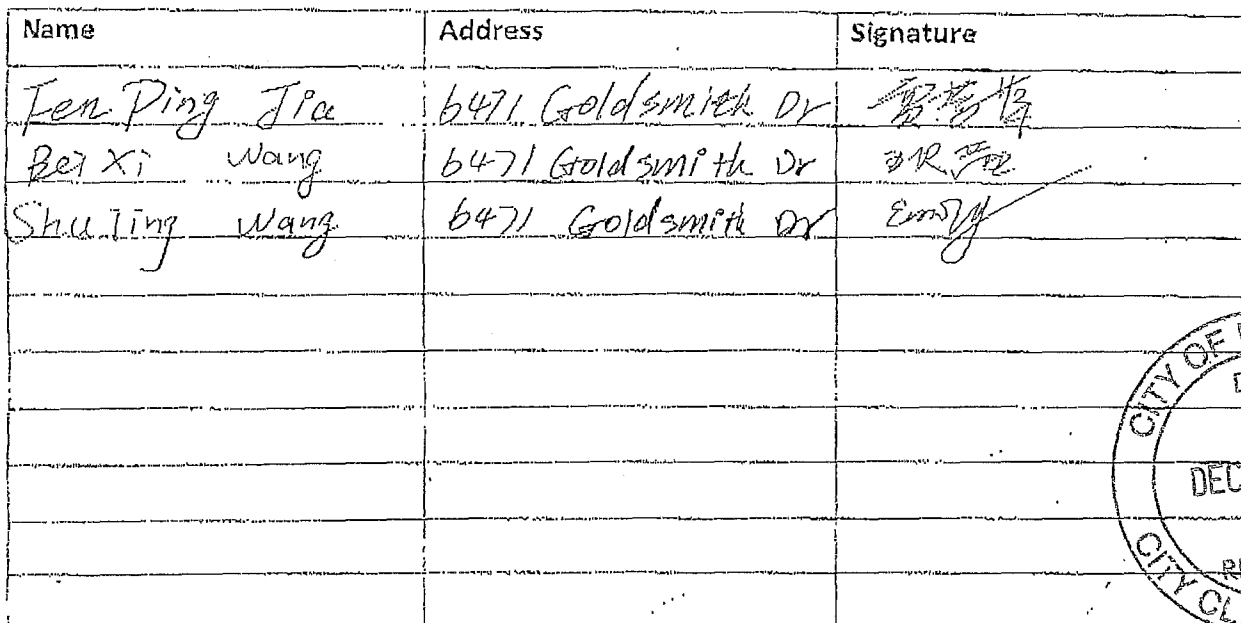 Name Address Signature
Fen Ping Jia 6471 Goldsmith Dr
Bei Xi Wang 6471 Goldsmith Dr
Shu Jing Wang 6471 Goldsmith Dr Emily
CITY OF
DEC
CITY CL